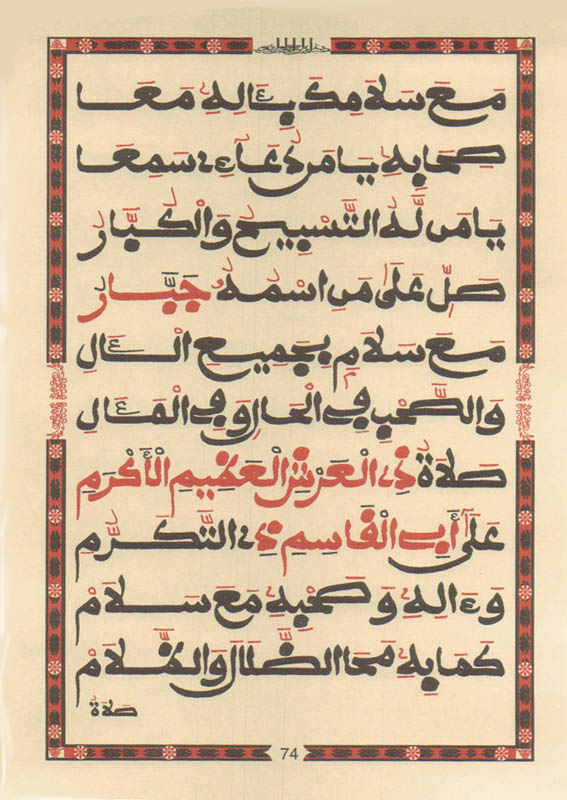 مَعَ سَلَامِكَ بِءَالِهِ مَعَا
صَحَابِهِ يَا مَن دُعَاءِي سَمِعَا
يَا مَن لَّهُ التَّسْبِيحُ وَالْكُبَّارُ
صَلِّ عَلَى مَنِ اسْمُهُ جَبَّارُ
مَعَ سَلَامٍ بِجَمِيعِ الْـَٔالِ
وَالصَّحْبِ فِي الْحَالِ وَفِي الْمَـَٔالِ
صَلَاةُ ذِي الْعَرْشِ الْعَظِيمِ الْأَكْرَمِ
عَلَى أَبِي الْقَاسِمِ ذِي التَّكَرُّمِ
وَءَالِهِ وَصَحْبِهِ مَعَ سَلَامْ
كَمَا بِهِ مَحَا الضَّلَالَ وَالظَّلَامْ
صَلَاةُ
74